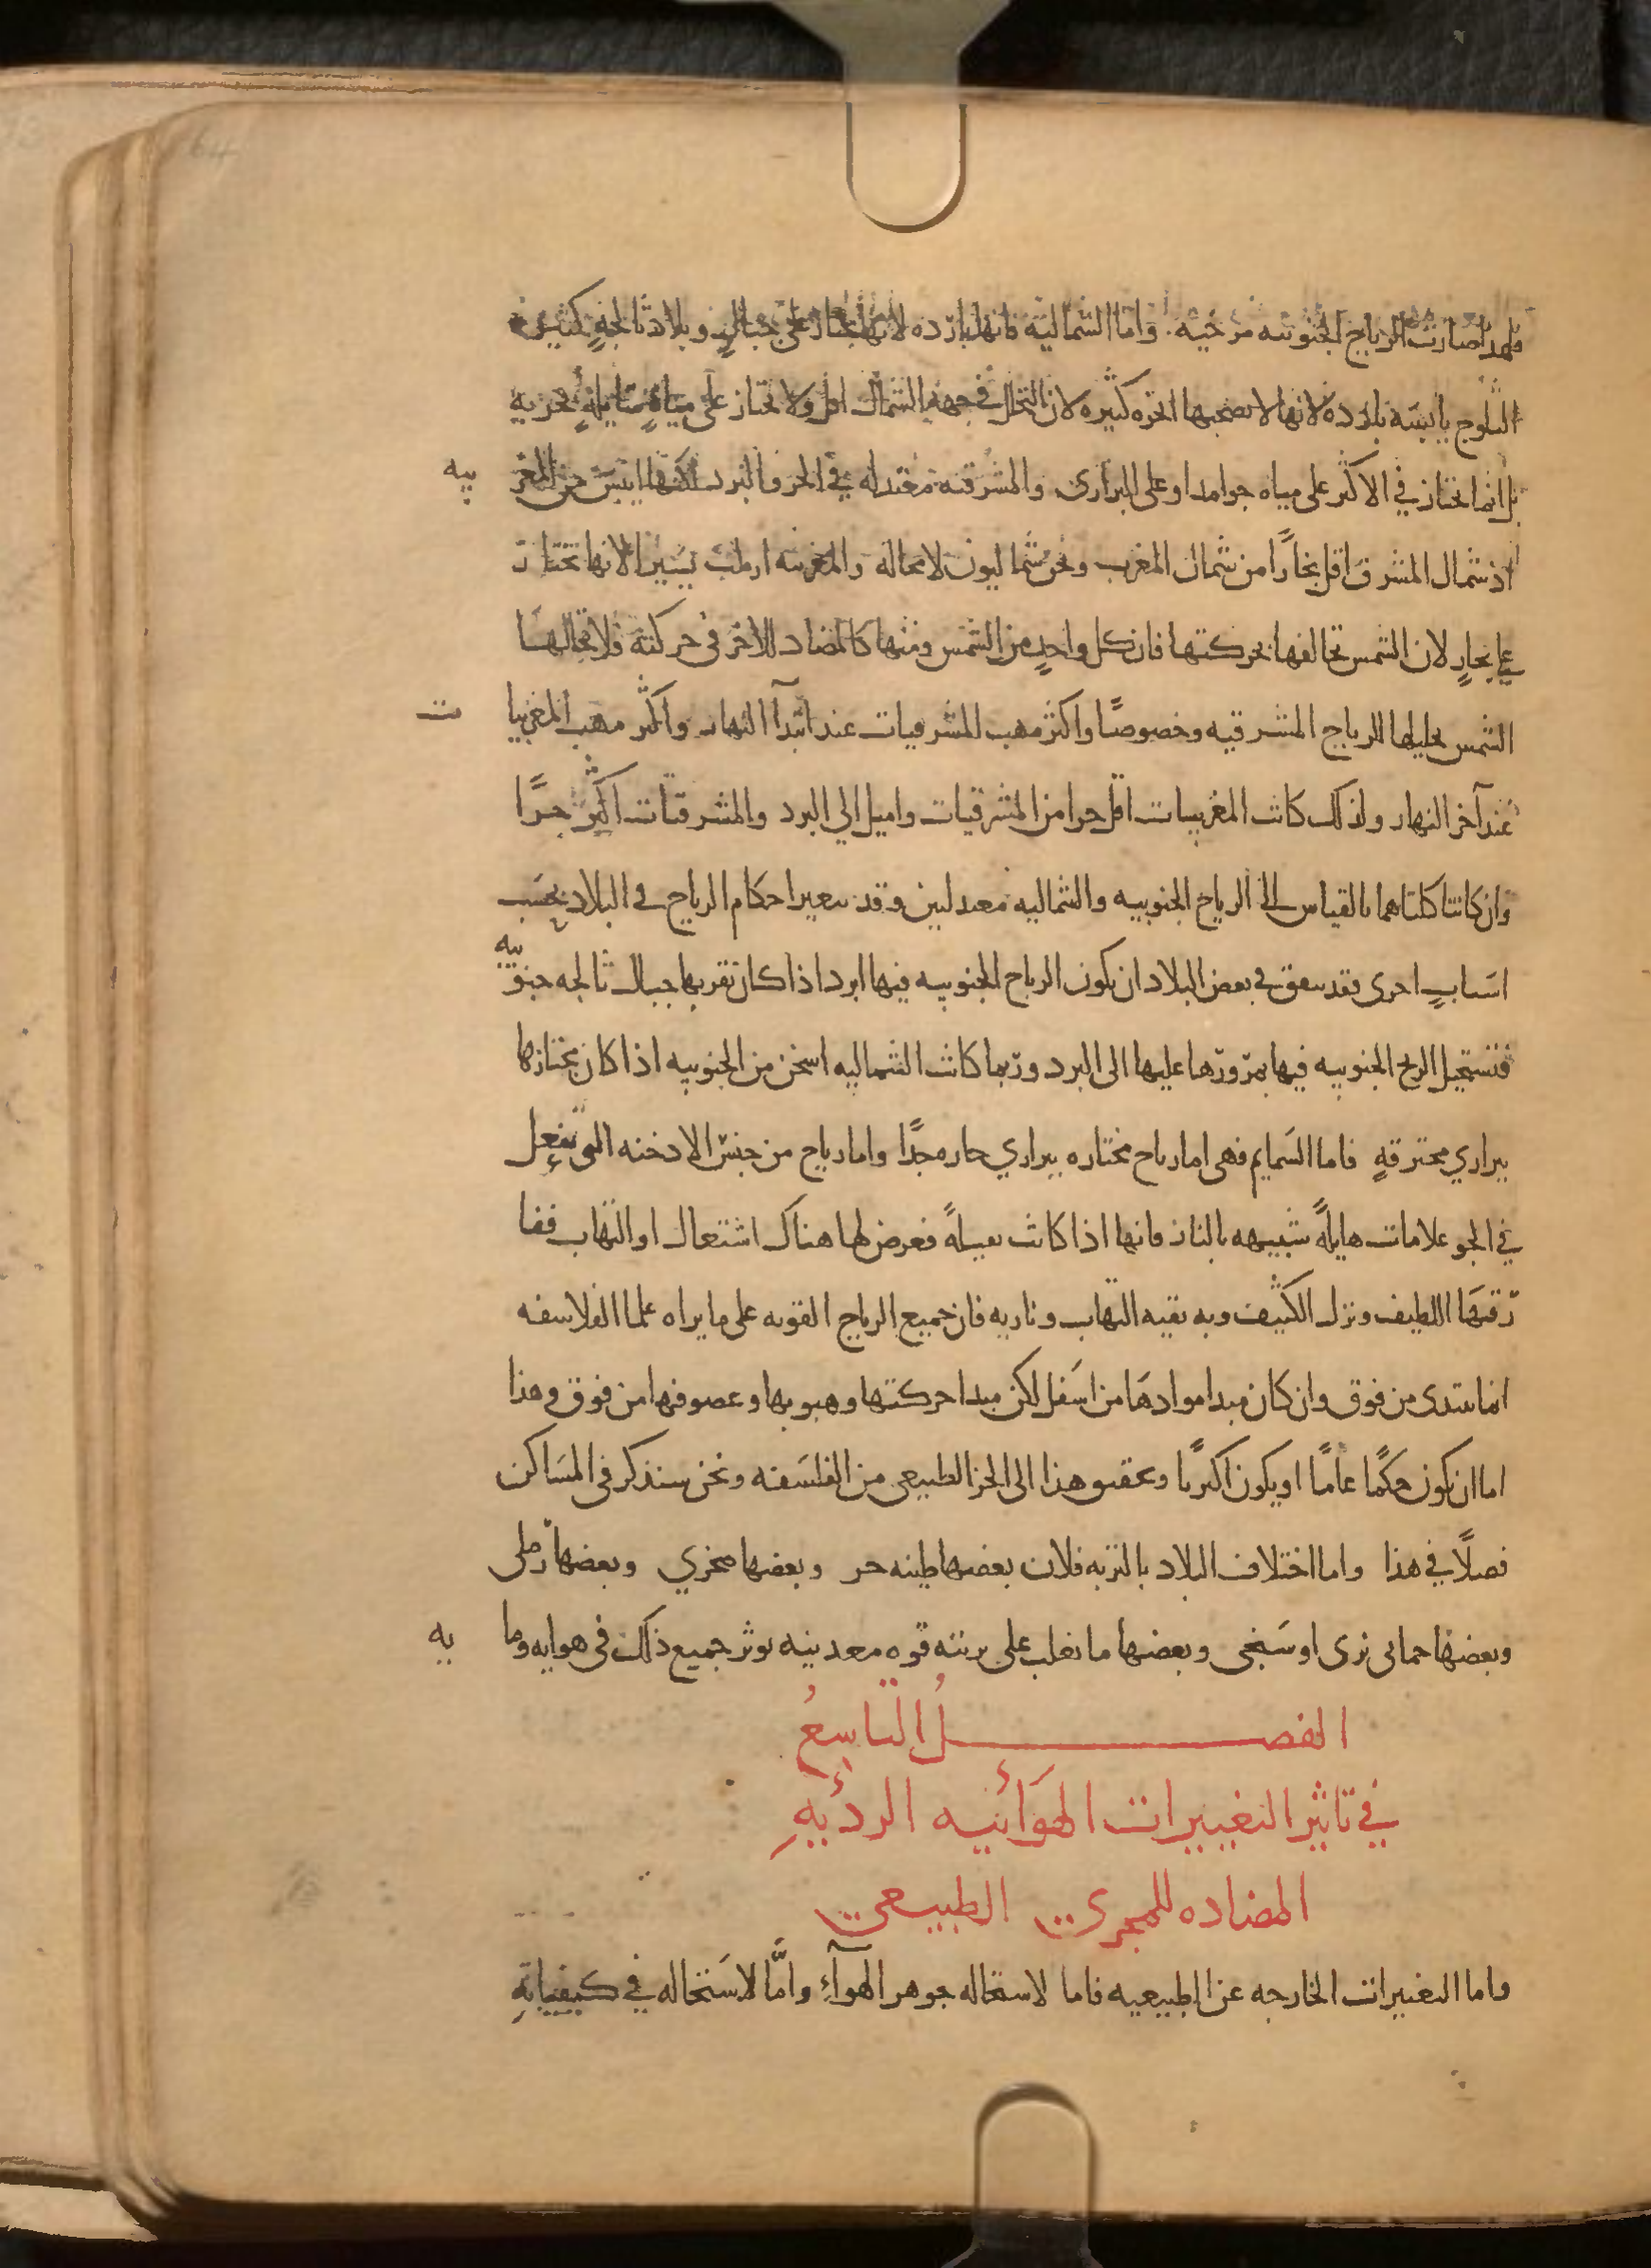 فلهذا صارت الرياح الجنوبيه مرخيه. واما الشمالية فانها بارده لانها تجتاز على جبالٍ وبلاد ثالجةٍ كثيره
الثلوج يابسة بارده لانها لا يصحبها ابخره كثيره لان التحلل في جهة الشمال اقل ولا تجتاز على مياةٍ سايلةٍ بحريه
بل انما تجتاز في الاكثر على مياه جوامد او على البرارى والمشرقية معتدله في الحر والبرد لكنها ايبس من المغر بيه
اذ شمال المشرق اقل بخارًا من شمال المغرب ونحن شماليون لا محاله والمغربيه ارطب يسيرا لانها تجتاز
على بحارٍ لان الشمس تخالفها بحركتها فان كل واحدٍ من الشمس ومنها كالمضاد للاخر في حركته فلا تحللها
الشمس تحليلها للرياح المشرقيه وخصوصًا واكثر مهب المشرقيات عند ابتدآ النهار واكثر مهب المغربيا ت
عند آخر النهار ولذلك كانت المغربيات اقل حرا من المشرقيات واميل الى البرد والمشرقيات اكثر حرًا
وان كانتا كلتاهما بالقياس الى الرياح الجنوبيه والشماليه معتدلتين وقد تتغير احكام الرياح في البلاد بحسب
اسبابٍ اخرى فقد يتفق في بعض البلاد ان يكون الرياح الجنوبيه فيها ابرد اذا كان بقربها جبال ثالجه جنوبيه
فتستحيل الريح الجنوبيه فيها بمرورها عليها الى البرد وربما كانت الشماليه اسخن من الجنوبيه اذا كان مجتازها
ببراري محترقةٍ فاما السمايم فهى اما رياح مجتازه ببراري حاره جدًا واما رياح من جنس الادخنه التى تفعل
في الجو علامات هايلةً شبيهه بالنار فانها اذا كانت ثقيلةً فعرض لها هناك اشتعال او التهاب ففا
رقها اللطيف ونزل الكثيف وبه بقيه التهاب وناريه فان جميع الرياح القويه على ما يراه علما الفلاسفه
انما تبتدى من فوق وان كان مبدا موادها من اسفل لكن مبدا حركتها وهبوبها وعصوفها من فوق وهذا
اما ان يكون حكمًا عامًا او يكون اكثريًا وتحقيق هذا الى الجز الطبيعى من الفلسفه ونحن سنذكر في المساكن
فصلًا في هذا واما اختلاف البلاد بالتربه فلان بعضها طينه حر وبعضها صخري وبعضها رملى
وبعضها حماتى نزى او سبخى وبعضها ما يغلب على تربته قوه معدنيه يوثر جميع ذلك في هوايه وما يه
الفصل التاسعُ
في تاثير التغييرات الهوَائيه الرديهِ
المضاده للمجرى الطبيعى
واما التغييرات الخارجه عن الطبيعيه فاما لاستحاله جوهر الهوآءِ وامَّا لاستحاله في كيفياتةِ